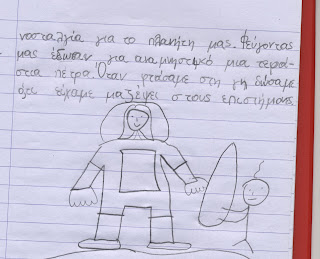 νοσταλγία για το πλανήτη μας. Φεύγοντας
μας έδωσαν για αναμνηστικό μια τερά-
στια πέτρα. Όταν φτάσαμε στη γη δώσαμε
ότι είχαμε μαζέψει στους επιστήμονες